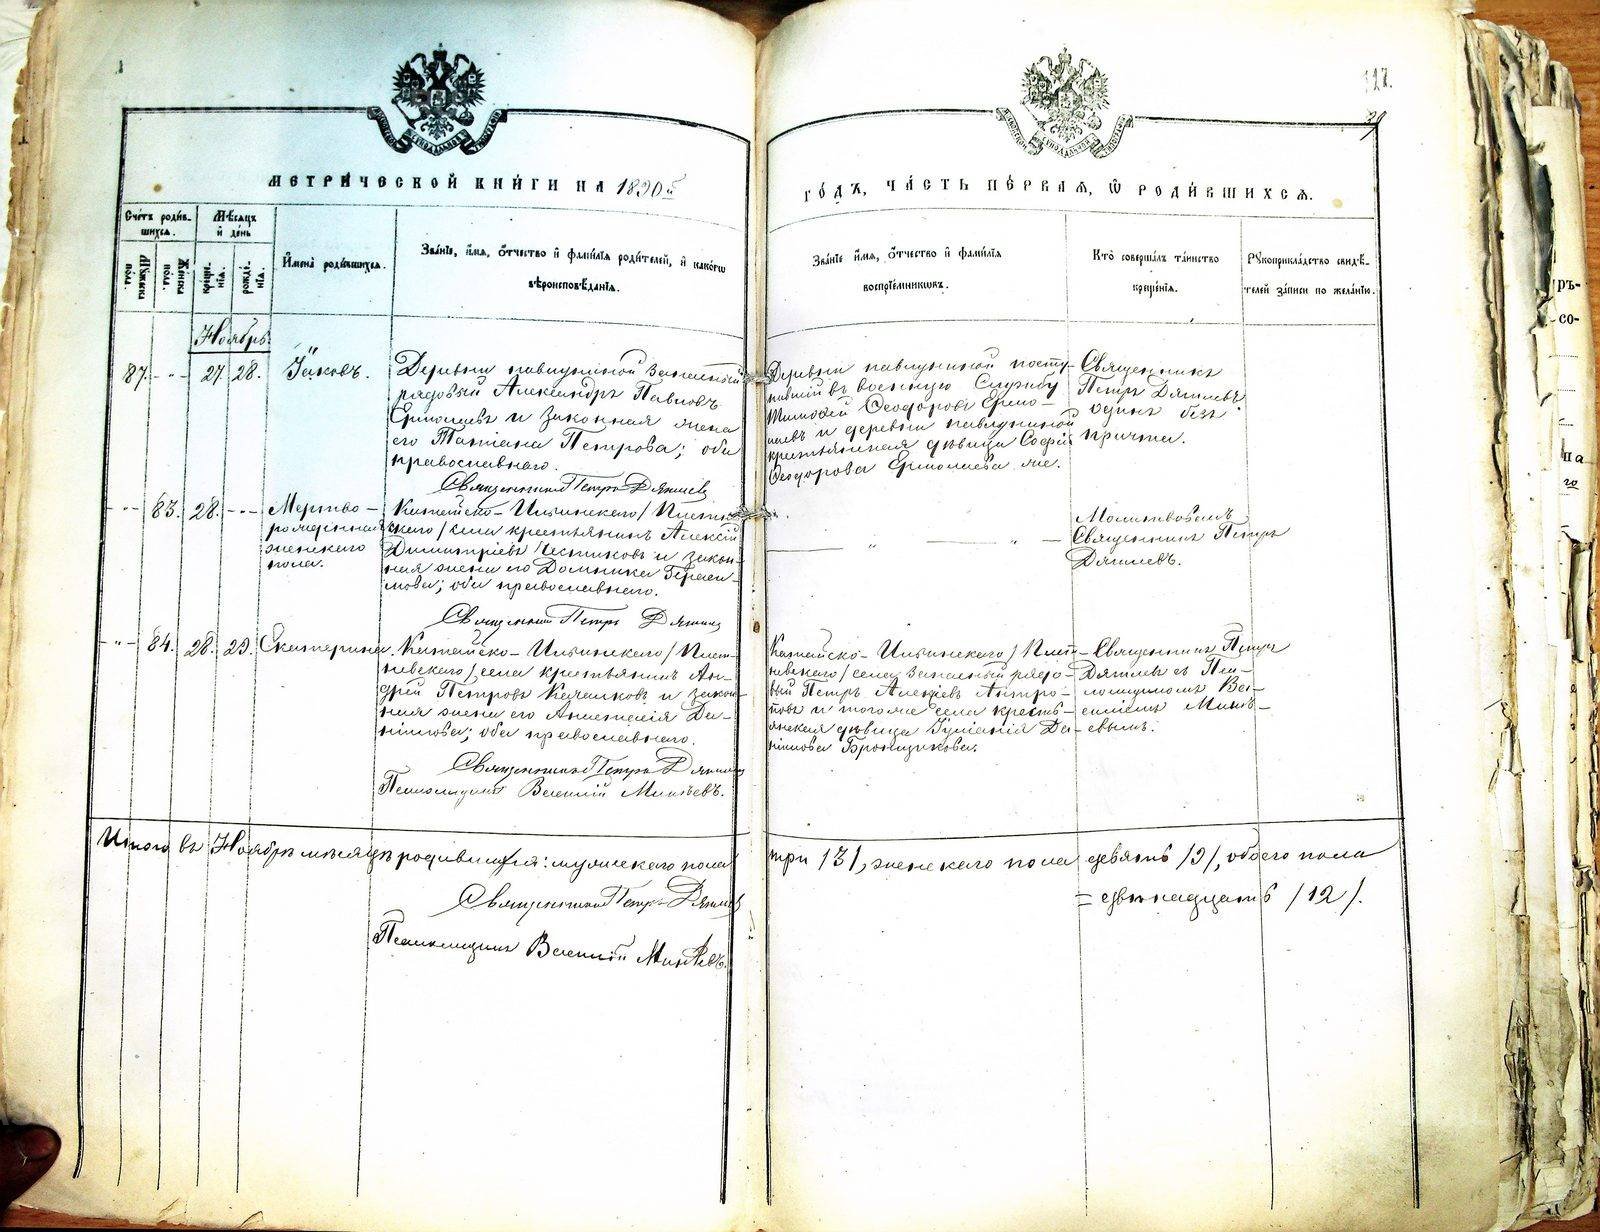 127.
МОСКОВСКОЙ СѴНОДАЛЬНОЙ ТИПОГРАФІИ
МОСКОВСКОЙ СѴНОДАЛЬНОЙ ТИПОГРАФІИ
МЕТРИ́ЧЕСКОЙ КНИ́ГИ НА 1890й
ГО́ДЪ, ЧА́СТЬ ПЕ́РВАЯ, Ѡ РОДИ́ВШИХСЯ.
Счетъ роди́в-
шихся.
Мѣсяцъ
и день
Мужска
пола.
Женска
пола.
креще-
нія.
рожде-
нія.
Имена̀ роди́вшихся.
Зва́ніе, имя, о́тчество и фами́лія роди́телей, и како́гѡ
вѣроисповѣ́данія.
Зва́ніе имя, о́тчество и фами́лія
воспріе́мникѡвъ.
Кто̀ соверша́лъ та́инство
креще́нія.
Рукоприкла́дство свидѣ́-
телей за́писи по жела́нію.
Ноябрь
87. - „ - 27. 28. Іаковъ.
Деревни Павлуниной запасный
рядовый Александръ Павловъ
Ермолаевъ и законная жена
его Татіана Петрова; оба
православнаго.
Священникъ Петръ Дягилевъ
Деревни Павлуниной посту-
пившій въ военную службу
Тимоѳей Ѳеодоровъ Ермо-
лаевъ и деревни Павлуниной
крестьянская дѣвица Софія
Ѳеодорова Ермолаева же.
Священникъ
Петръ Дягилевъ
одинъ безъ
причта.
- „ - 83. 28. - „ -
Мертво-
рожденная
женскаго
пола.
Катайско-Ильинскаго /Плот-
скаго/ села крестьянинъ Алексій
Димитріевъ и закон-
ная жена его Домника Гераси-
мова; оба православнаго.
Священникъ Петръ Дягилевъ
— „ — „ —
Молитвовалъ
Священникъ Петръ
Дягилевъ.
- „ - 84. 28. 29. Екатерина.
Катайско-Ильинскаго /Плот-
невскаго/ села крестьянинъ Ан-
дрей Петровъ и закон-
ная жена его Анастасія Да-
ніилова; оба православнаго.
Священникъ Петръ Дягилевъ
Псаломщикъ Василій Миняевъ.
Катайско-Ильинскаго /Плот-
невскаго/ села запасный рядо-
вый Петръ Алексіевъ Антро-
повъ и того же села кресть-
янская дѣвица Іуліанія Да-
ніилова Бронникова.
Священникъ Петръ
Дягилевъ съ Пса-
ломщикомъ Ва-
силіемъ Миня-
евымъ.
Итого въ Ноябрѣ мѣсяцѣ родившихся: мужескаго пола
три /3/, женскаго пола девять /9/, обоего пола
= двѣнадцать /12/.
Священникъ Петръ Дягилевъ
Псаломщикъ Василій Миняевъ.